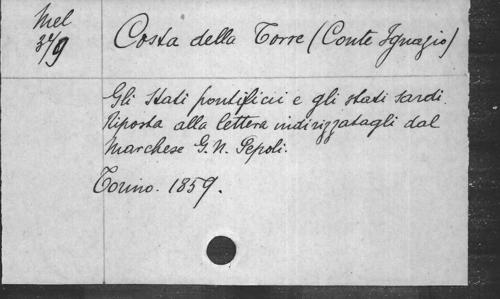 Mel
379
Costa della Torre (Conte Ignazio)
Gli Stati pontificii e gli stati sardi.
Riposta alla lettera indirizzatagli dal
Marchese G. N. Pepoli.
Torino. 1859.